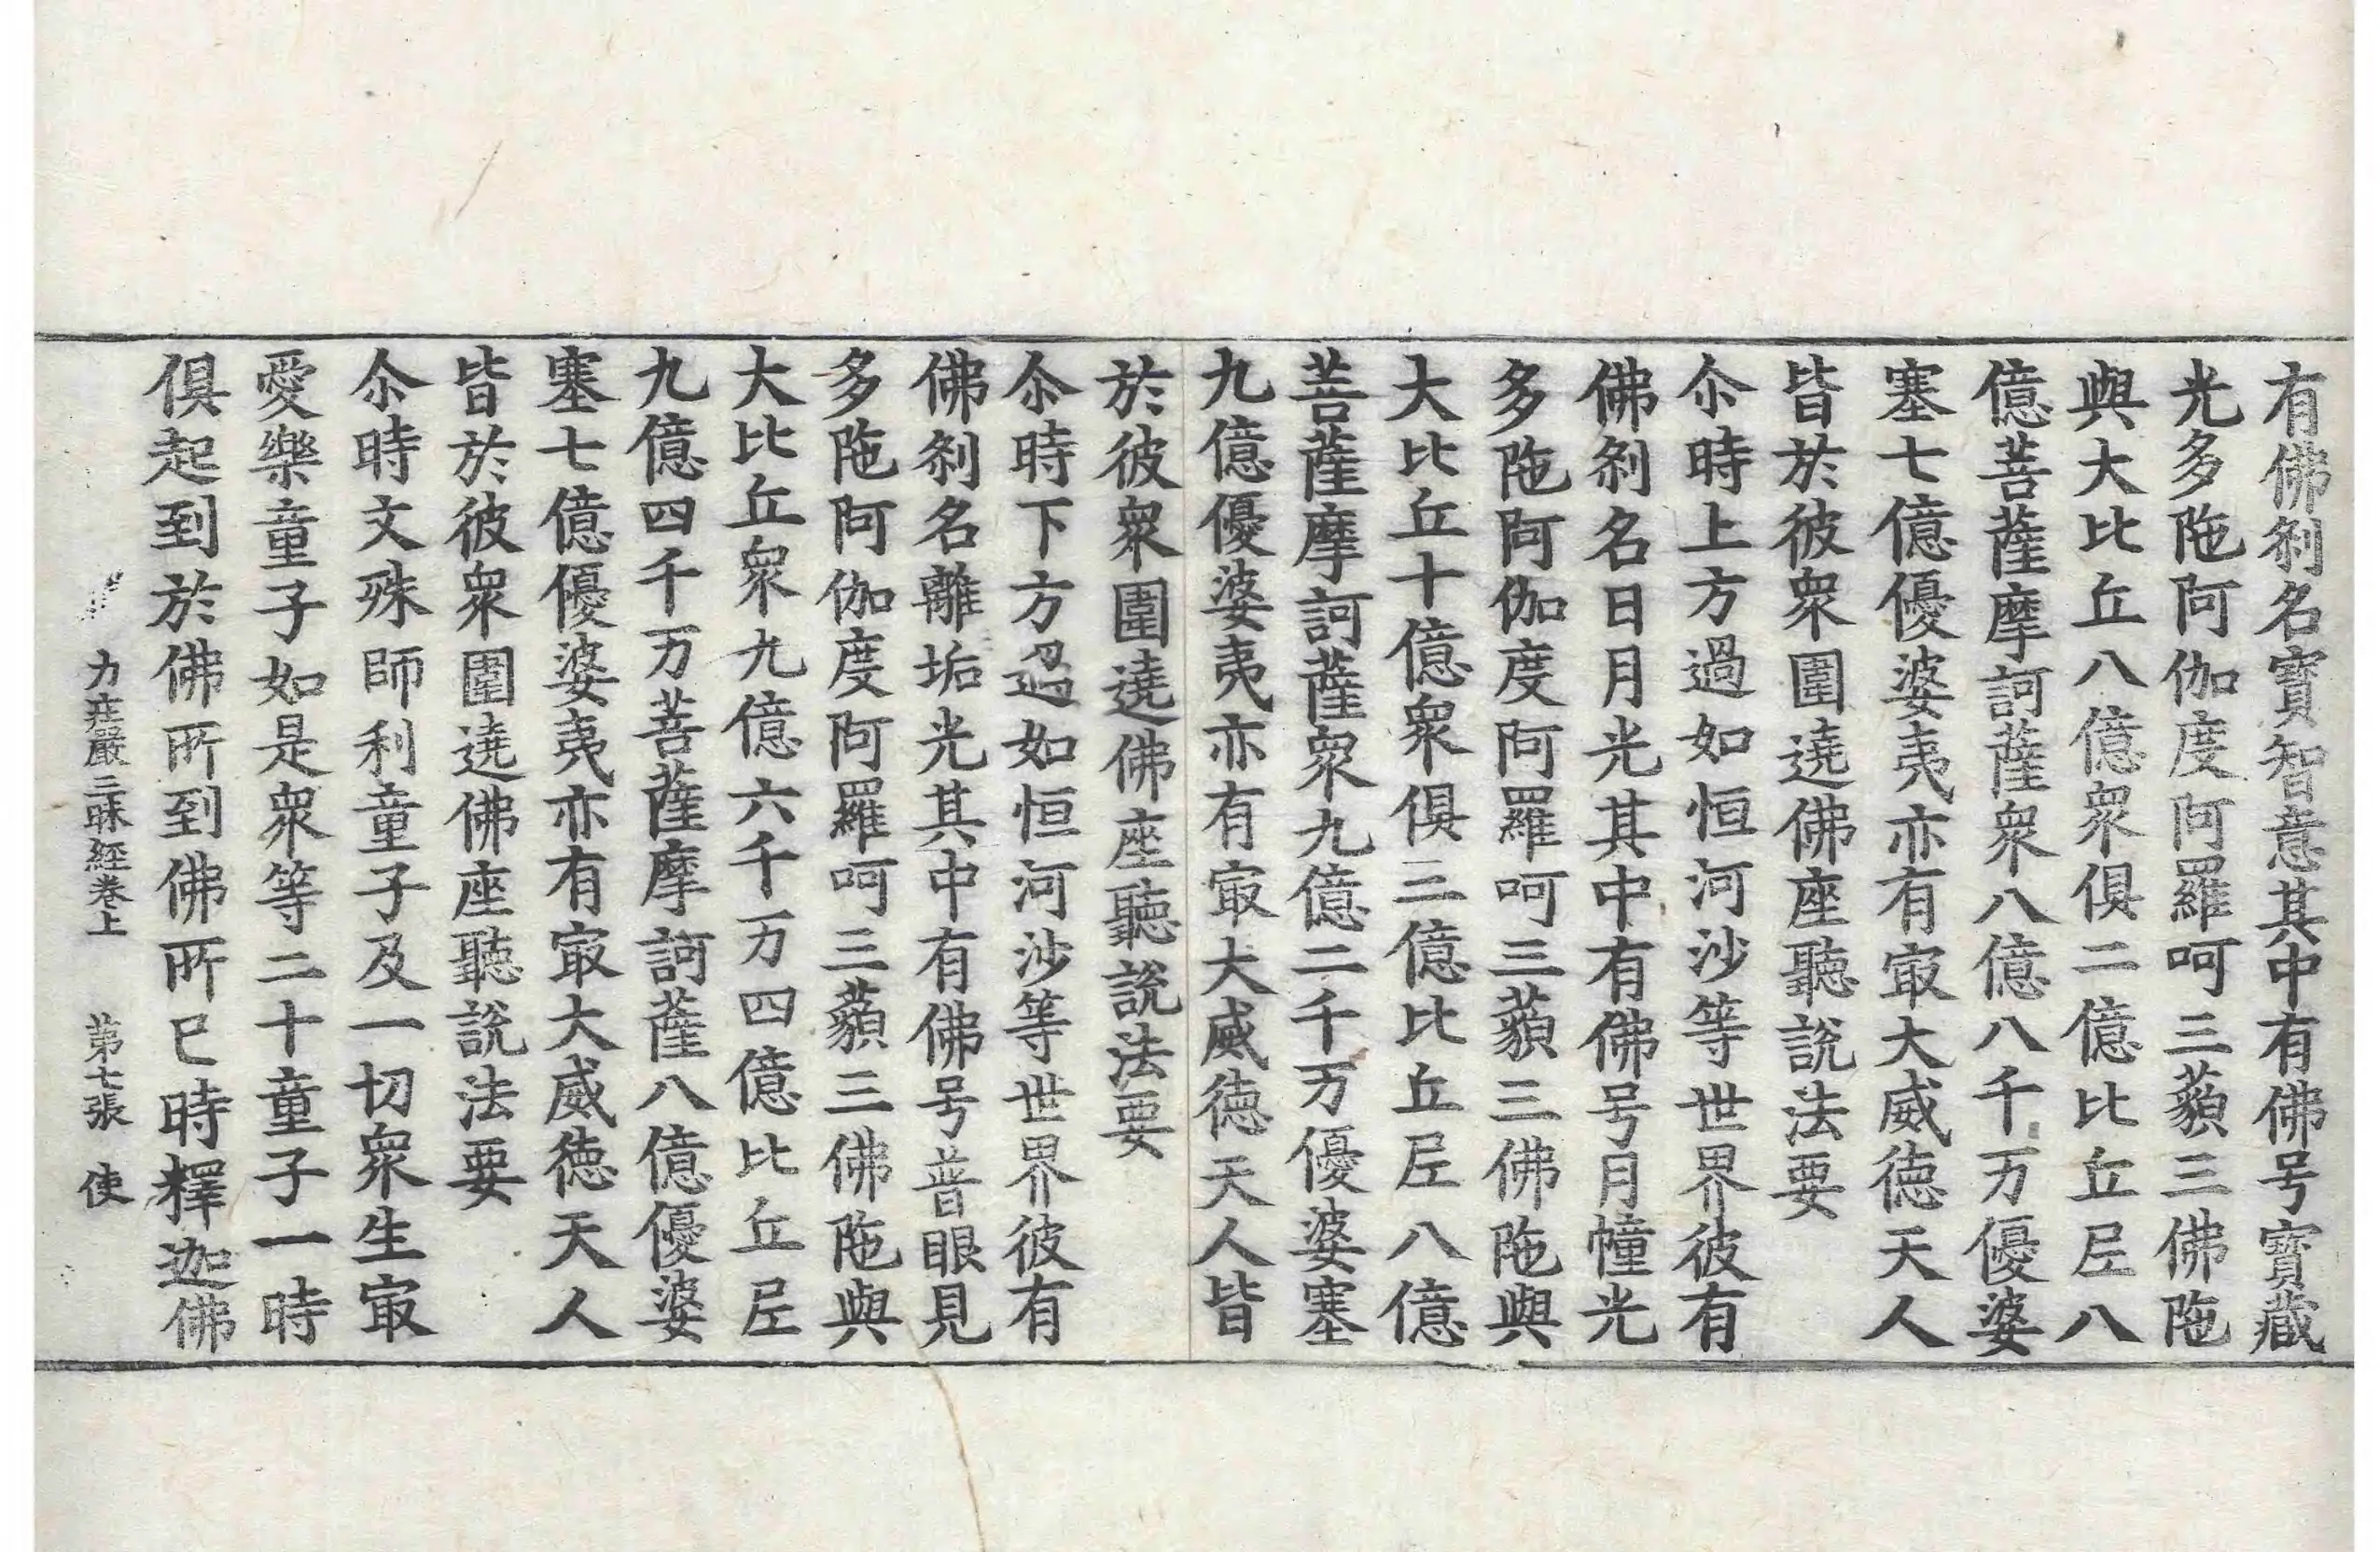 有佛刹名寳智意其中有佛号寳藏
光多陁阿伽度阿羅呵三藐三佛陁
與大比丘八億衆俱二億比丘尼八
億菩薩摩訶薩衆八億八千万優婆
塞七億優婆夷亦有㝡大威徳天人
皆於彼衆圍遶佛座聽說法要
尒時上方過如恒河沙等世界彼有
佛刹名日月光其中有佛号月幢光
多陁阿伽度阿羅呵三藐三佛陁與
大比丘十億衆俱三億比丘尼八億
菩薩摩訶薩衆九億二千万優婆塞
九億優婆夷亦有㝡大威徳天人皆
於彼衆圍遶佛座聽說法要
尒時下方過如恒河沙等世界彼有
佛刹名離垢光其中有佛号普眼見
多陁阿伽度阿羅呵三藐三佛陁與
大比丘衆九億六千万四億比丘尼
九億四千万菩薩摩訶薩八億優婆
塞七億優婆夷亦有㝡大威徳天人
皆於彼衆圍遶佛座聽說法要
尒時文殊師利童子及一切衆生㝡
愛樂童子如是衆等二十童子一時
俱起到於佛所到佛所已時釋迦佛
力莊嚴三昧經卷上　第七張　使